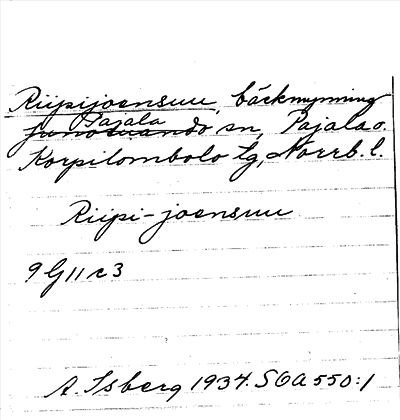 Riipijoensuu, bäckmynning
Pajala
Junosuando sn, Pajala o.
Korpilombolo lg, Norrb. l.
Riipi-joensuu
9 G 11 c 3
A. Isberg 1934. SOA 550:1